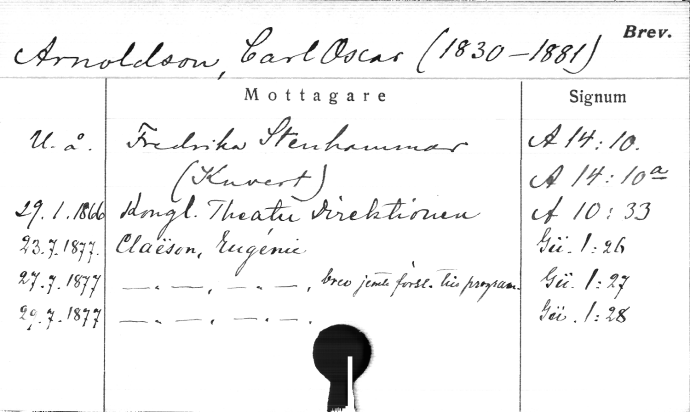 Brev.
Arnoldson, Carl Oscar (1830-1881)
Mottagare Signum
U. å. Fredrika Stenhammar A 14:10.
(Kuvert) A 14:10a
29.1.1866 Kongl. Theater Direktionen A 10:33
23.7.1877. Claëson, Eugénie Gü. 1:26
27.7.1877 —„—, —„—, brev jemte försl. till program. Gü. 1:27
29.7.1877 —„—, —„—. Gü. 1:28